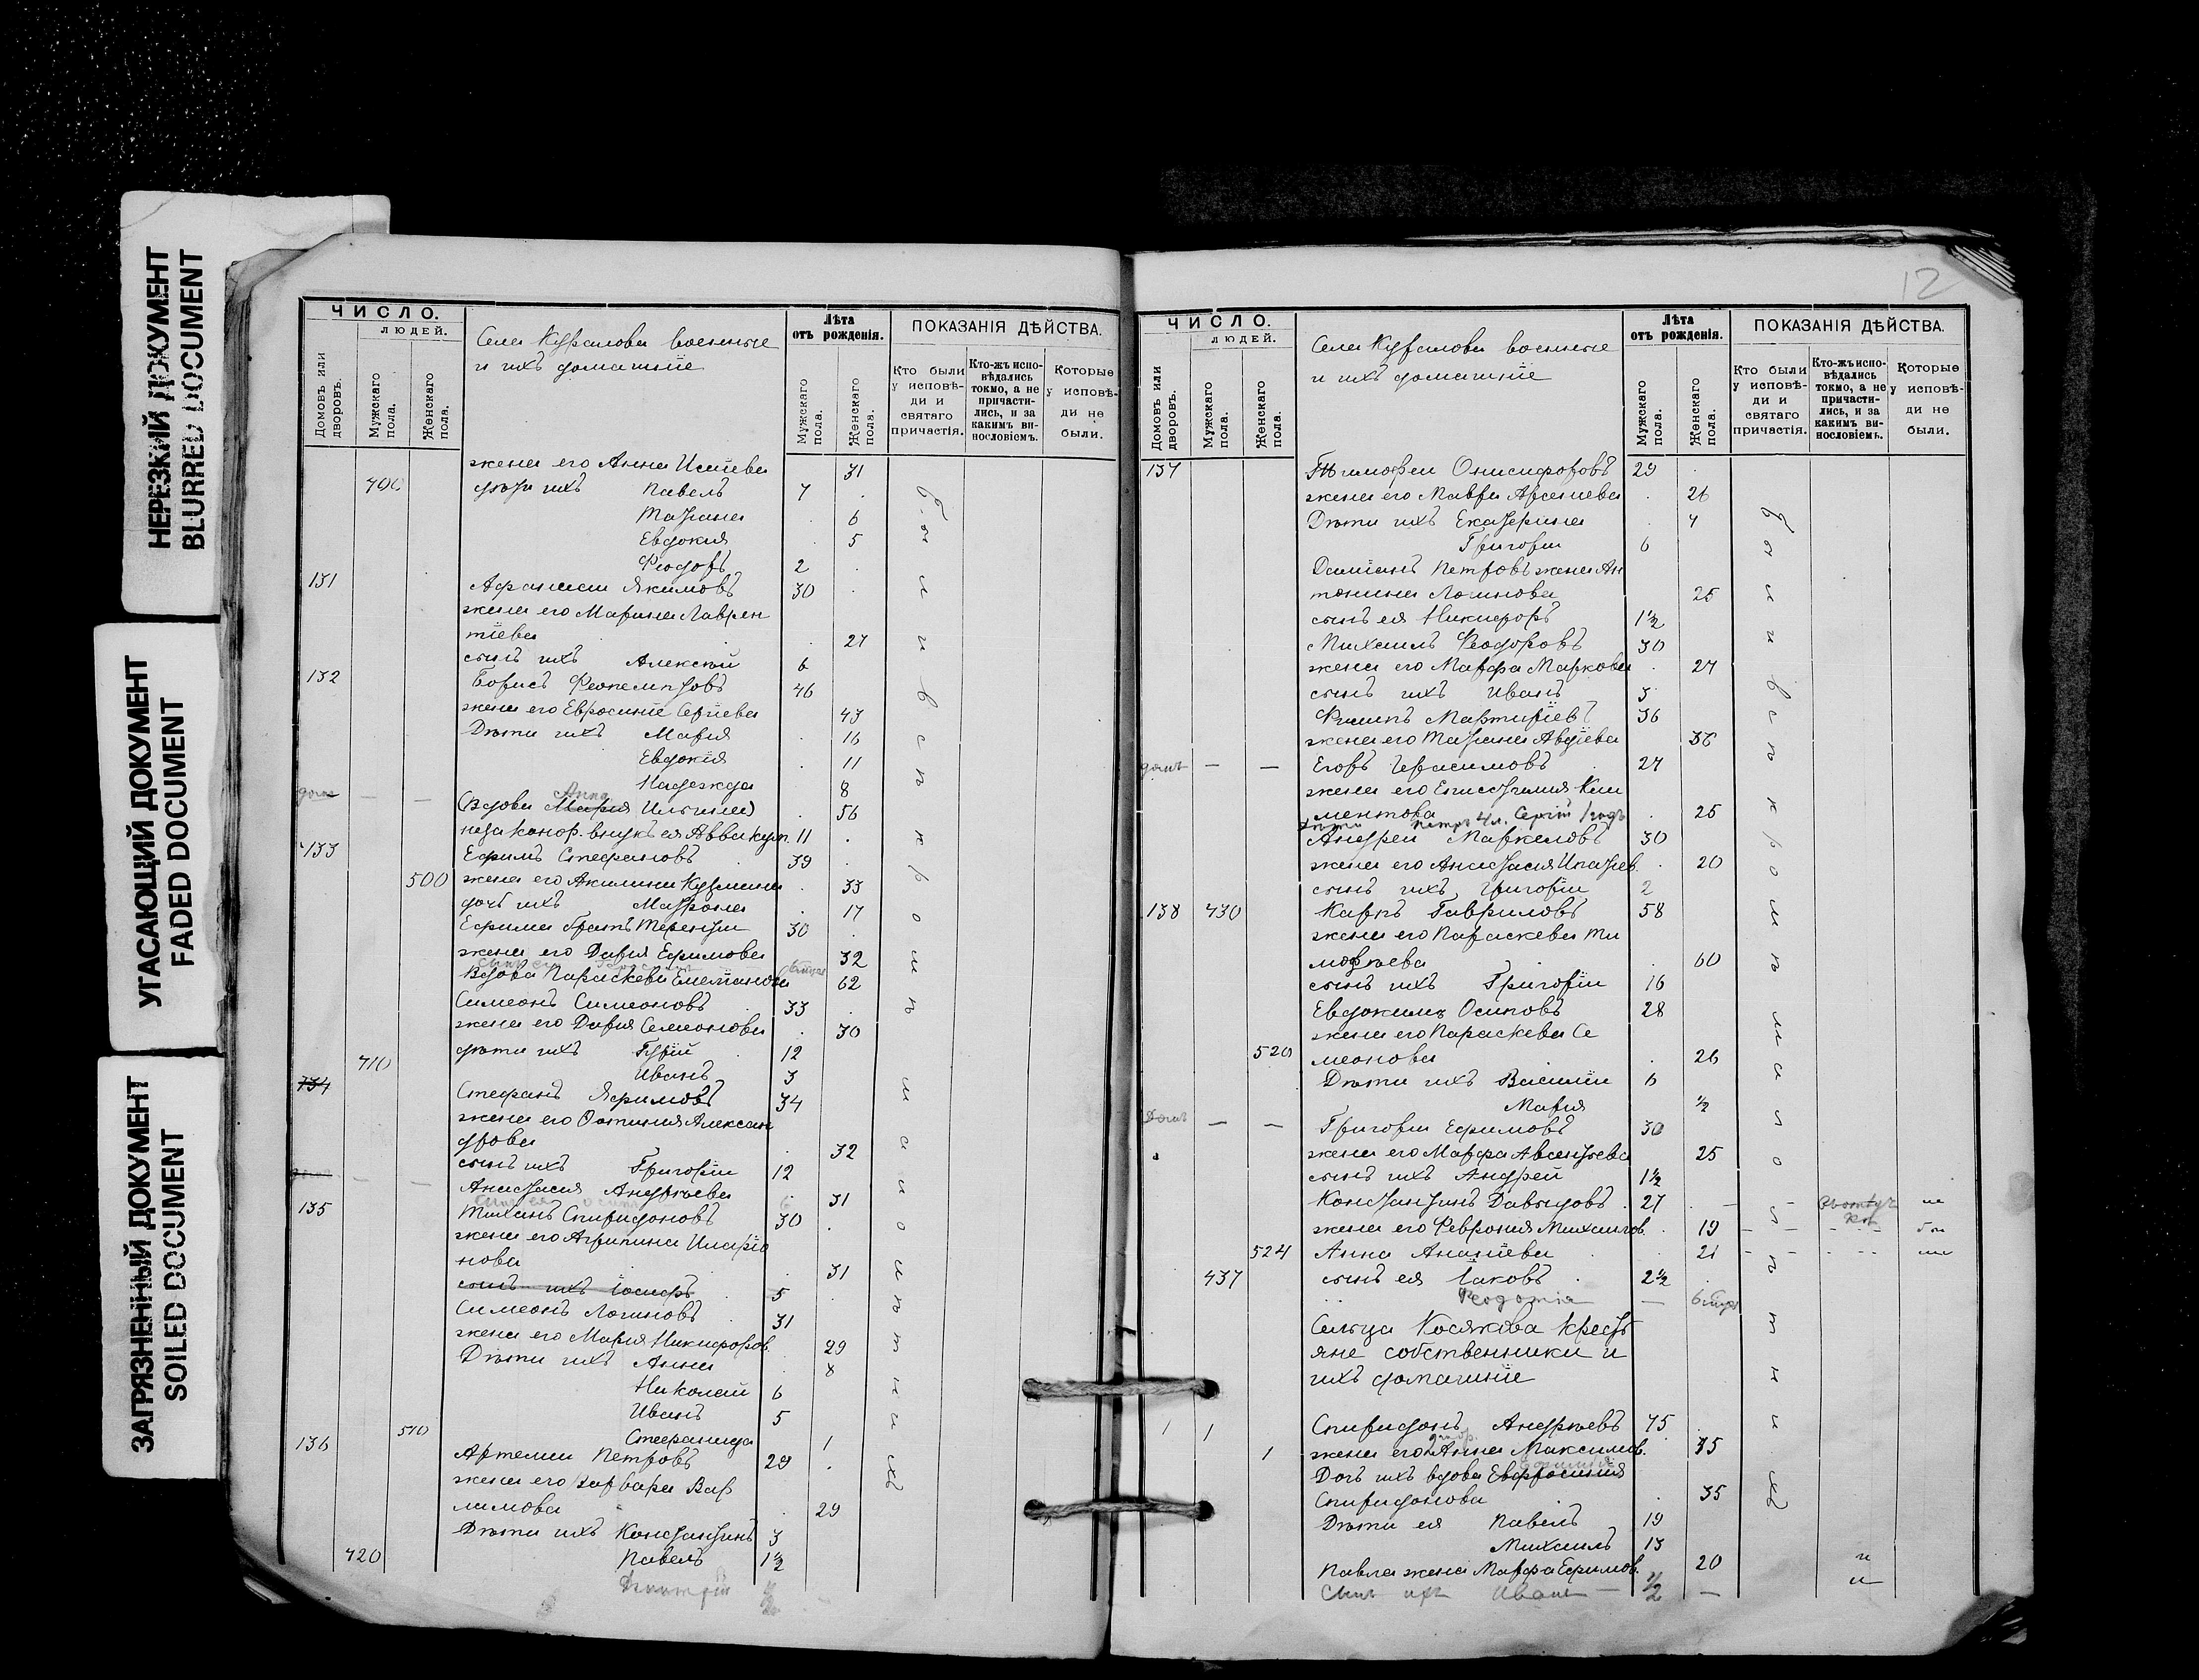 НЕРЕЗКИЙ ДОКУМЕНТ
BLURRED DOCUMENT
УГАСАЮЩИЙ ДОКУМЕНТ
FADED DOCUMENT
ЗАГРЯЗНЕННЫЙ ДОКУМЕНТ
SOILED DOCUMENT
ЧИСЛО.
ЛЮДЕЙ.
Домовъ или дворовъ.
Мужскаго пола.
Женскаго пола.
Села Курапова военные
и ихъ домашніе
Лѣта
отъ рожденія.
Мужскаго пола.
Женскаго пола.
ПОКАЗАНІЯ ДѢЙСТВА.
Кто были у исповѣ-ди и святаго причастія.
Кто-жъ испо-вѣдались токмо, а не причасти-лись, и за какимъ ви-нословіемъ.
Которые у исповѣ-ди не были.
жена его Анна Исаіева 31
дѣти ихъ Павелъ 7
Татіана 6
Евдокія 5
Ѳеодоръ 2
131 Афанасіи Якимовъ 30
жена его Марина Лаврен
тіева 27
сынъ ихъ Алексѣй 6
132 Борисъ 46
жена его Евросиніе Сергіева 43
Дѣти ихъ Марія 16
Евдокія 11
Надежда 8
Анна
Вдова Мария 56
внукъ ея Аввакум. 11
133 Ефимъ Стефановъ 39
500 жена его Акилина Кузмина 33
дочь ихъ Матрона 17
Ефима братъ Терентіи 30
жена его Дарія Ефимова 32
Вдова Параскева Емеліанова 62
Симеонъ Симеоновъ 33
жена его Дарія Семионова 30
710 дѣти ихъ Гурій 12
Иванъ 3
134 Стефанъ 34
жена его Алексан
дрова 32
сынъ ихъ Григоріи 12
Анастасія Андрѣева 31
135 Спиридоновъ 30
жена его Агрипина Иларіо
нова 31
сынъ ихъ Іосифъ 5
Симеонъ Логиновъ 31
жена его Марія Никифоров. 29
Дѣти ихъ Анна 8
Николай 6
Иванъ 5
510 Стефанида 1
136 Артемии Петровъ 29
жена его Варвара Вар
ламова 29
Дѣти ихъ Константинъ 3
720 Павелъ 1½
Димитрій ½
12
ЧИСЛО.
ЛЮДЕЙ.
Домовъ или дворовъ.
Мужскаго пола.
Женскаго пола.
Села Курапова военные
и ихъ домашніе
Лѣта
отъ рожденія.
Мужскаго пола.
Женскаго пола.
ПОКАЗАНІЯ ДѢЙСТВА.
Кто были у исповѣ-ди и святаго причастія.
Кто-жъ испо-вѣдались токмо, а не причасти-лись, и за какимъ ви-нословіемъ.
Которые у исповѣ-ди не были.
137 Тимофеи Онисифоровъ 29
жена его Мавра Арсениева 26
Дѣти ихъ Екатерина
Григоріи 6
Даміанъ Петровъ жена Ан
тонина Логинова 25
сынъ ея Никифоръ 1½
Михаилъ Ѳеодоровъ 30
жена его Марфа Маркова 27
сынъ ихъ Иванъ 3
Филипъ Мартиріевъ 36
жена его Татіана Авдіева 36
домъ Егоръ Герасимовъ 27
жена его Кли
ментова 25
дѣти Петръ 4 л. Сергій 1 годъ
Андреи Маркеловъ 30
жена его Анастасія Игнатіев. 20
сынъ ихъ Григоріи 2
138 430 Карпъ Гавриловъ 58
жена его Параскева Ти
мофѣева 60
сынъ ихъ Григоріи 16
Евдокимъ Осиповъ 28
жена его Параскева Се
520 меонова 26
Дѣти ихъ Василии 6
Марія ½
Домъ Григоріи Ефимовъ 30
жена его Марфа Авксентьева 25
сынъ ихъ Андрей 1½
Константинъ Давыдовъ 27
жена его Февронія Михаилов. 19
524 Анна Ананіева 21
437 сынъ ея Іаковъ 2½
Сельца Косякова крестъ
яне собственники и
ихъ домашніе
1 1 Спиридонъ Андрѣевъ 75
1 жена его Анна Максимов. 35
Дочь ихъ вдова Евфросинія
Спиридонова 35
Дѣти ея Павелъ 19
Михаилъ 13
Павла жена Марфа Ефимов. 20
Сынъ ихъ Иванъ — ½ —